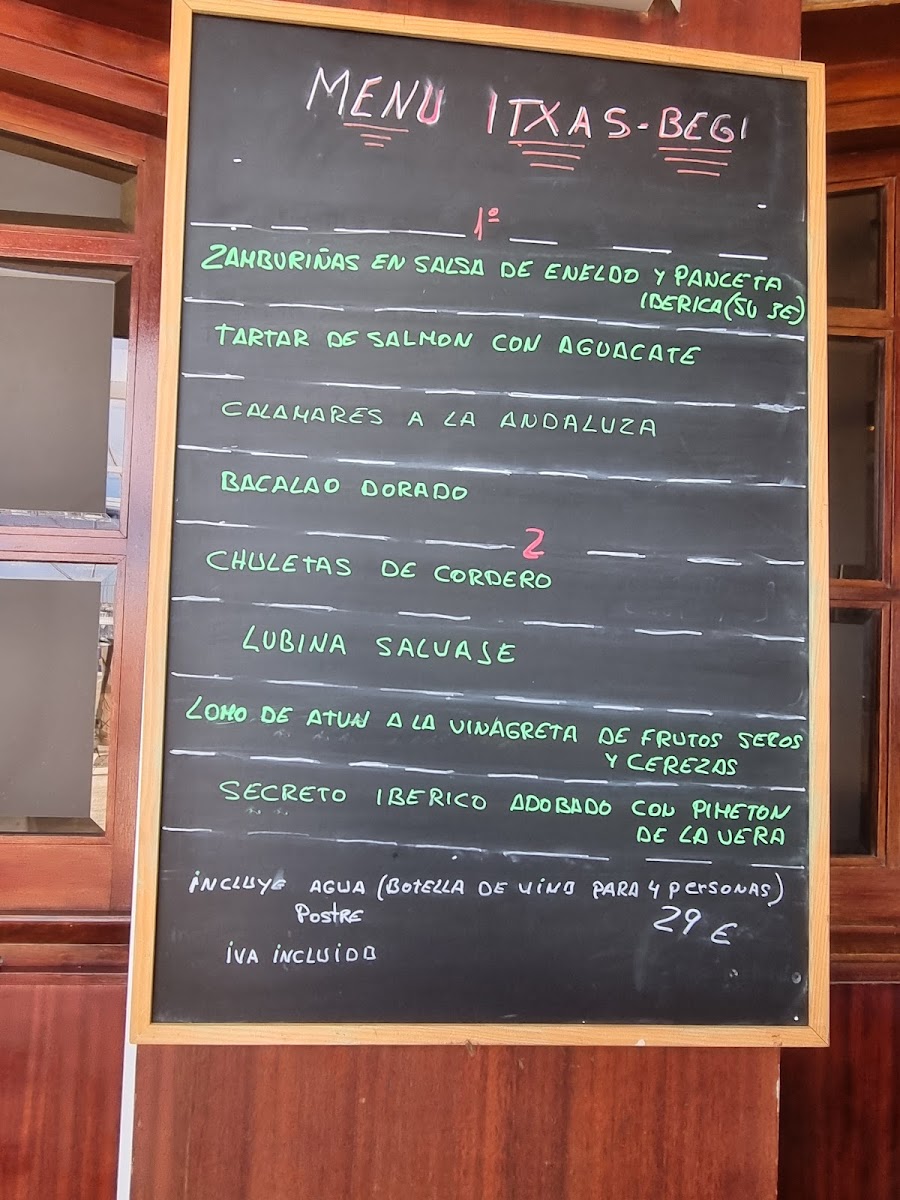 MENU ITXAS-BEGI
1º
ZAMBURIÑAS EN SALSA DE ENELDO Y PANCETA
IBERICA (SU 3E)
TARTAR DE SALMON CON AGUACATE
CALAMARES A LA ANDALUZA
BACALAO DORADO
2
CHULETAS DE CORDERO
LUBINA SALVAJE
LOMO DE ATUN A LA VINAGRETA DE FRUTOS SECOS
Y CEREZAS
SECRETO IBERICO ADOBADO CON PIMETON
DE LA VERA
INCLUYE AGUA (BOTELLA DE VINO PARA 4 PERSONAS)
POSTRE 29 €
IVA INCLUIDO